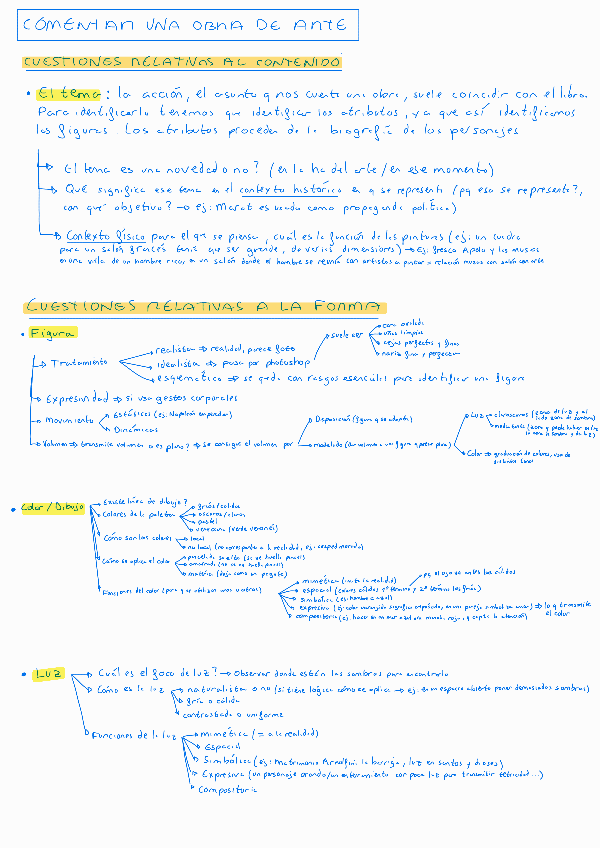 COMENTAR UNA OBRA DE ARTE
CUESTIONES RELATIVAS AL CONTENIDO
• El tema: la acción, el asunto q nos cuenta una obra, suele coincidir con el libro.
Para identificarlo tenemos que identificar los atributos, ya que así identificamos
las figuras. Los atributos proceden de la biografía de los personajes
El tema es una novedad o no? (en la ha del arte/en ese momento)
Qué significa ese tema en el contexto histórico en q se representa (pq eso se representa?,
con qué objetivo? → ej: Marat es usado como propaganda política)
Contexto físico para el que se piensa, cuál es la función de las pinturas (ej: un cuadro
para un salón francés tenía que ser grande, de varias dimensiones) → Ej: fresco Apolo y las musas
en una villa de un hombre rico, en un salón donde el hombre se reunía con artistas a
CUESTIONES RELATIVAS A LA FORMA
• Figura
Tratamiento
realista → realidad, parece foto
idealista → pasa por photoshop
suele ser
cara ovalada
uñas limpias
cejas perfectas y finas
nariz fina y perfecta
esquemática → se queda con rasgos esenciales para identificar una figura
Expresividad → si usa gestos corporales
Movimiento
Estáticas (ej: Napoleón emperador)
Dinámicas
Volumen → transmite volumen o es plano? → Se consigue el volumen por
Disposición (figura q se adapta)
modelado (Dar volumen a una figura q parece plana)
Luz
claroscuros (zona de luz y al lado zona de sombra)
Color → graduación de colores, uso de distintos tonos
• Color/Dibujo
Existe línea de dibujo?
Colores de la paleta
fríos/cálidos
oscuros/claros
pastel
veneciana (verde veronés)
Cómo son los colores
local
no local (no corresponde a la realidad, ej: césped morado)
Cómo se aplica el color
matérica (deja como un pegote)
Funciones del color (para q se utilizan unos u otros)
mimética (imita la realidad)
espacial (colores cálidos 1º término y 2º término los fríos)
pq el ojo se va a los cálidos
simbólica
expresiva
lo q transmite el color
compositoria
• LUZ
Cuál es el foco de luz? → Observar donde están las sombras para encontrarlo
Cómo es la luz
naturalista o no (si tiene lógica cómo se aplica → ej: en un espacio abierto poner demasiadas sombras)
fría o cálida
contrastada o uniforme
Funciones de la luz
mimética (= a la realidad)
Espacial
Simbólica (ej: Matrimonio Arnolfini: la barriga, luz en santos y dioses)
Expresiva (un personaje orando/un enterramiento con poca luz para transmitir tetricidad...)
Compositoria